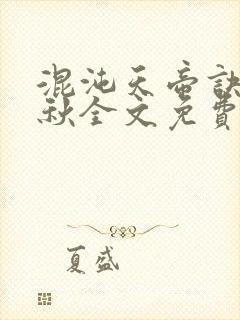 混沌天帝訣
秋全文免費
夏盛